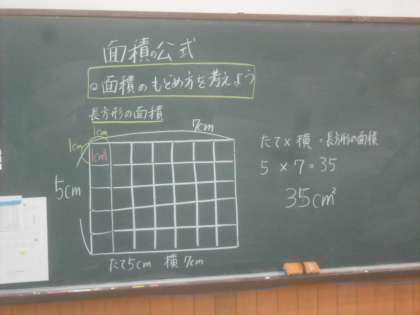 面積の公式
面積のもとめ方を考えよう
長方形の面積
1cm
7cm
1cm
1cm²
5cm
たて5cm 横7cm
たて×横=長方形の面積
5×7=35
35cm²